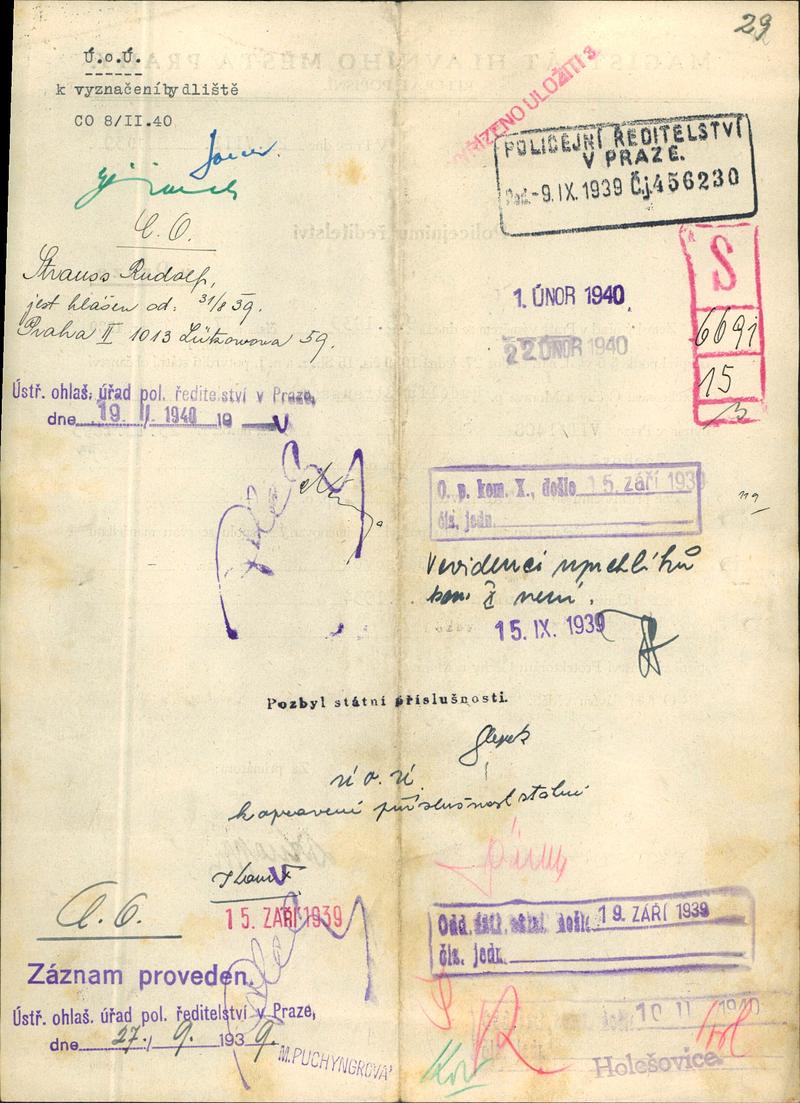 29
Ú.o.Ú.
k vyznačeníbydliště
CO 8/II.40
VYŘÍZENO ULOŽITI 3
POLICEJNÍ ŘEDITELSTVÍ
V PRAZE.
-9.IX.1939 Čj456230
C. O.
Strauss Rudolf,
jest hlášen od: 31/8 39.
Praha II 1013 Lützowova 59.
1. ÚNOR 1940
22 ÚNOR 1940
S
6691
15
Ústř. ohlaš. úřad pol. ředitelství v Praze,
dne 19 1940 19
O. p. kom. X., došlo 15. září 1939
čís. jedn.
V evidenci uprchlíků
není.
15. IX. 1939
Pozbyl státní příslušnosti.
k opravení příslušnost státní
C. O.
15. ZÁŘÍ 1939
došlo 19. ZÁŘÍ 1939
čís. jedn.
Záznam proveden.
Ústř. ohlaš. úřad pol. ředitelství v Praze,
dne 27./ 9. 1939.
M. PUCHYNGROVÁ
10 II 1940
Holešovice